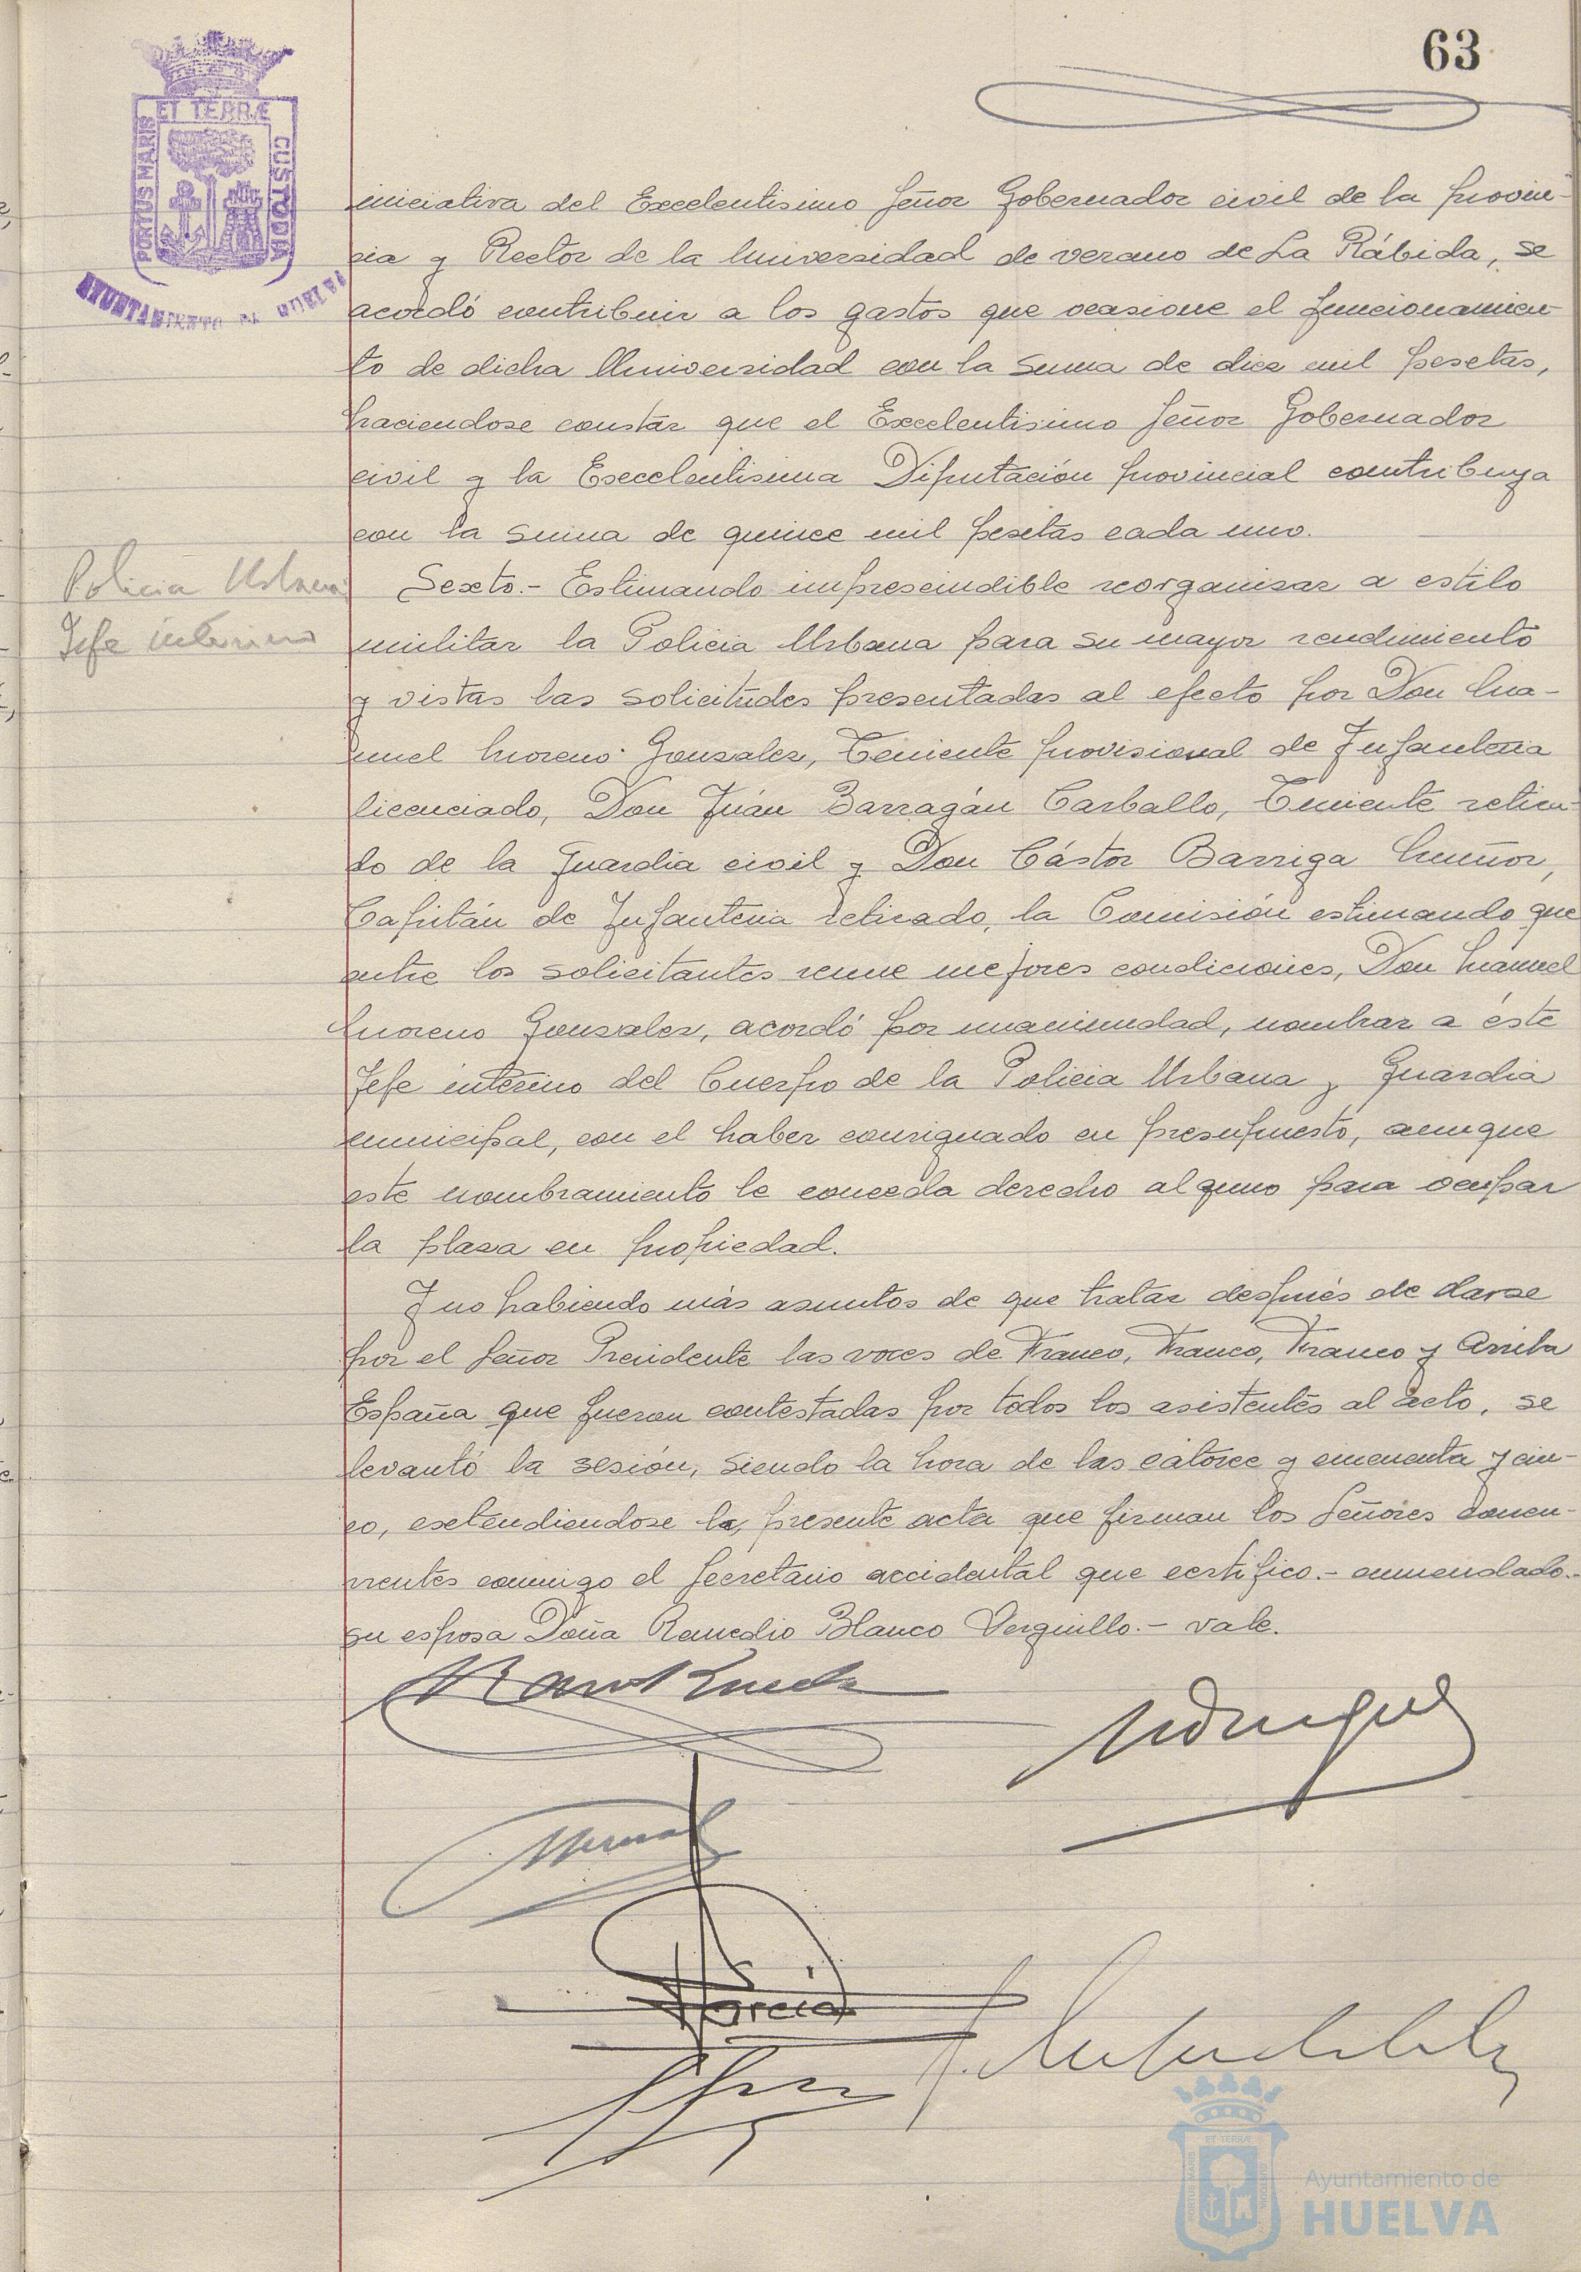 63
PORTUS MARIS ET TERRÆ CUSTODIA
AYUNTAMIENTO DE HUELVA
iniciativa del Excelentisimo Señor Gobernador civil de la provin-
cia y Rector de la Universidad de verano de La Rábida, se
acordó contribuir a los gastos que ocasione el funcionamien-
to de dicha Universidad con la suma de diez mil pesetas,
haciendose constar que el Excelentisimo Señor Gobernador
civil y la Excelentisima Diputación provincial contribuya
con la suma de quince mil pesetas cada uno.
Policia Urbana
Jefe interino
Sexto.- Estimando imprescindible reorganizar a estilo
militar la Policia Urbana para su mayor rendimiento
y vistas las solicitudes presentadas al efecto por Don Ma-
nuel Moreno Gonzalez, Teniente provisional de Infanteria
licenciado, Don Juán Barragán Carballo, Teniente retira-
do de la Guardia civil y Don Cástor Barriga Muñoz,
Capitán de Infanteria retirado, la Comisión estimando que
entre los solicitantes reune mejores condiciones, Don Manuel
Moreno Gonzalez, acordó por unanimidad, nombrar a éste
Jefe interino del Cuerpo de la Policia Urbana y Guardia
municipal, con el haber consignado en presupuesto, aunque
este nombramiento le conceda derecho alguno para ocupar
la plaza en propiedad.
Y no habiendo más asuntos de que tratar después de darse
por el Señor Presidente las voces de Franco, Franco, Franco y Arriba
España que fueron contestadas por todos los asistentes al acto, se
levantó la sesión, siendo la hora de las catorce y cincuenta y cin-
co, extendiendose la presente acta que firman los Señores concu-
rrentes conmigo el Secretario accidental que certifico.- enmendado.-
su esposa Doña Remedio Blanco Verguillo.- vale.
Garcia
Ayuntamiento de
HUELVA